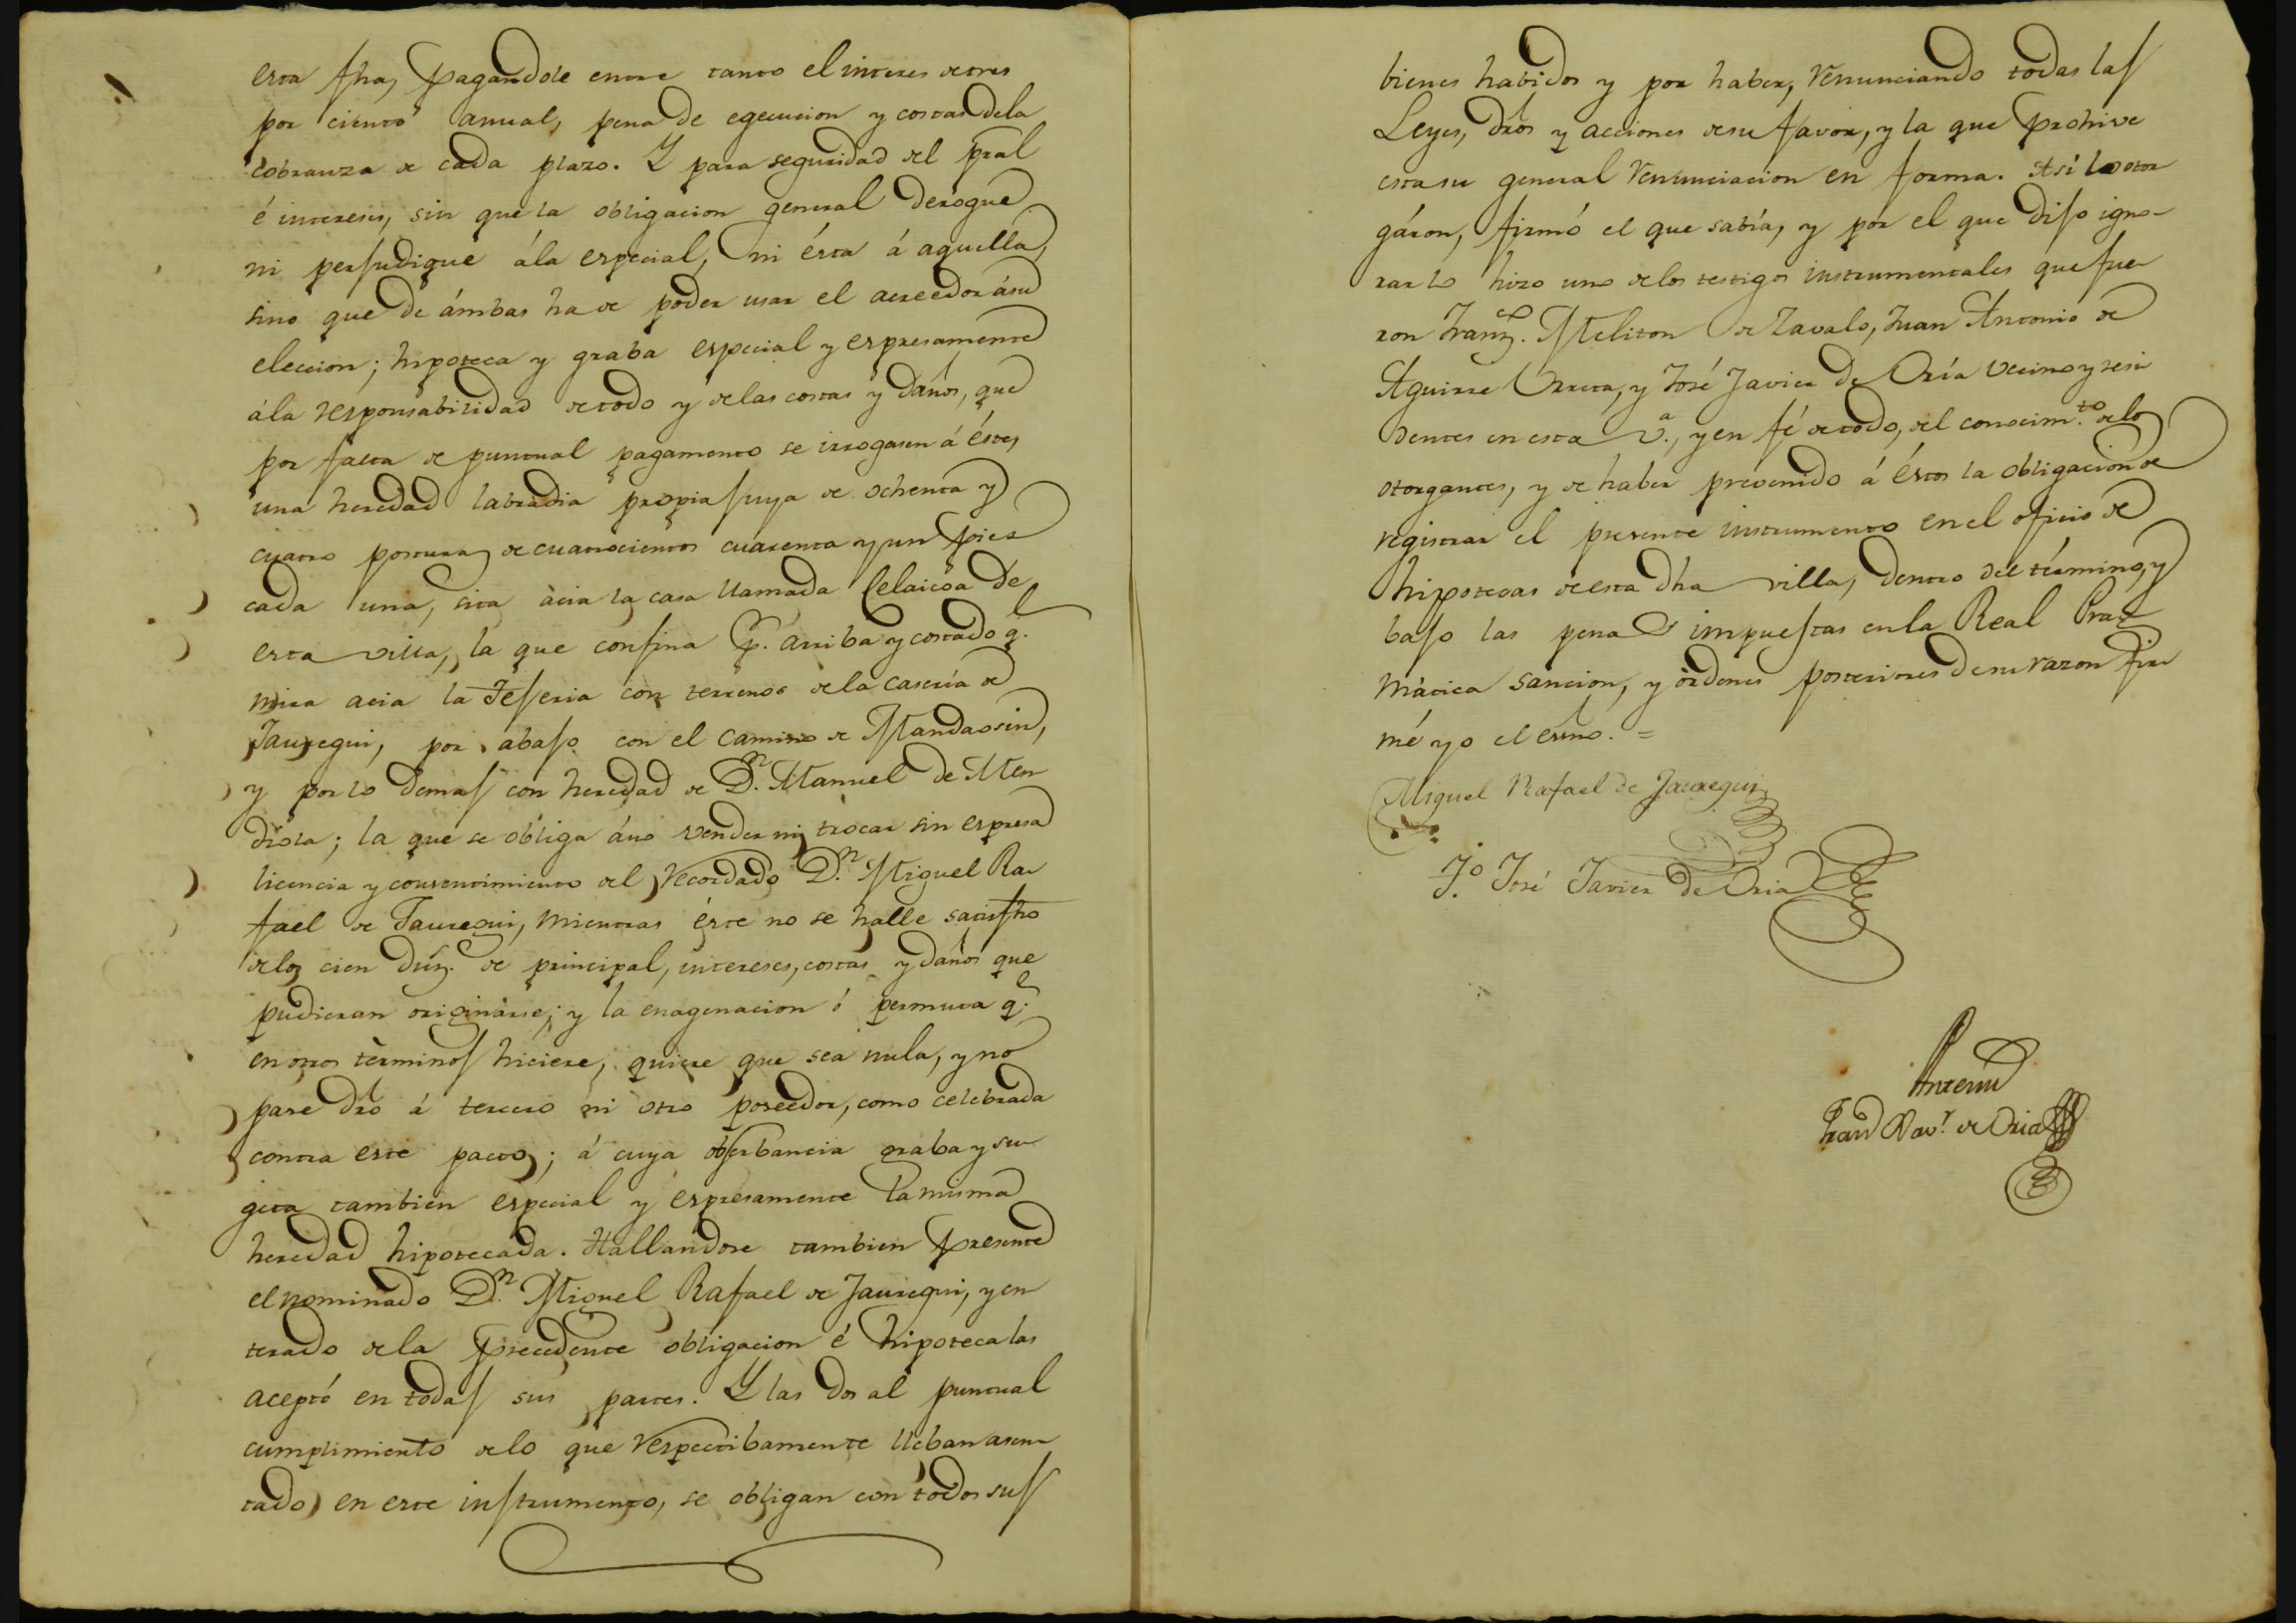 esta fha, pagandole entre tanto el interes de tres
por ciento anual, pena de egecucion y costas dela
cobranza de cada plazo. Y para seguridad del pral
é intereses, sin que la obligacion general derogue
ni perjudique ála especial, ni ésta á aquella,
sino que de ámbas ha de poder usar el acreedor ásu
eleccion; hipoteca y graba especial y espresamente
ála responsabilidad de todo y de las costas y daños, que
por falta de puntual pagamento se irrogasen á éste,
una heredad labradia propia suya de ochenta y
cuatro posturas de cuatrocientos cuarenta y un pies
cada una, sita ácia la casa llamada Celaicoa de
esta villa, la que confina p. arriba y costado q.e
mira acia la Tejeria con terrenos de la casería de
Jauregui, por abajo con el camino de Mandaosin,
y por lo demas con heredad de D.n Manuel de Men
diola; la que se obliga áno vender ni trocar sin espresa
licencia y consentimiento del recordado D.n Miguel Ra
fael de Jauregui, mientras éste no se halle satisfho
delos cien dús. de principal, intereses, costas y daños que
pudieran originárse; y la enagenacion ó permuta q.e
en otros términos hiciere, quiere que sea nula, y no
pase dro á tercero ni otro poseedor, como celebrada
contra este pacto; á cuya obserbancia graba y su
geta tambien especial y espresamente la misma
heredad hipotecada. Hallandose tambien presente
el nominado D.n Miguel Rafael de Jauregui, y en
terado de la precedente obligacion é hipoteca las
aceptó en todas sus partes. Y las dos al puntual
cumplimiento de lo que respectibamente lleban asen
tado en este instrumento, se obligan con todos sus
bienes habidos y por haber, renunciando todas las
Leyes, dros y acciones de su favor, y la que prohive
esta su general renunciacion en forma. Asi lo otor
gáron, firmó el que sabía, y por el que dijo igno-
rar lo hizo uno de los testigos instrumentales que fue
ron Fran.co Meliton de Zavalo, Juan Antonio de
Aguirre Urruta, y José Javier de Oría vecino y resi
dentes en esta v.a, y en fé de todo, del conocim.to de lo
otorgantes, y de haber prevenido á éstos la obligacion de
registrar el presente instrumento en el oficio de
hipotecas de esta dha villa, dentro del término, y
bajo las penas impuestas en la Real Prag
mática sancion, y órdenes posteriores de su razon fir
mé yo el esno. =
Miguel Rafael de Jauregui
T.o José Javier de Oria
Antemi
Fran.co Xav.r de Oria